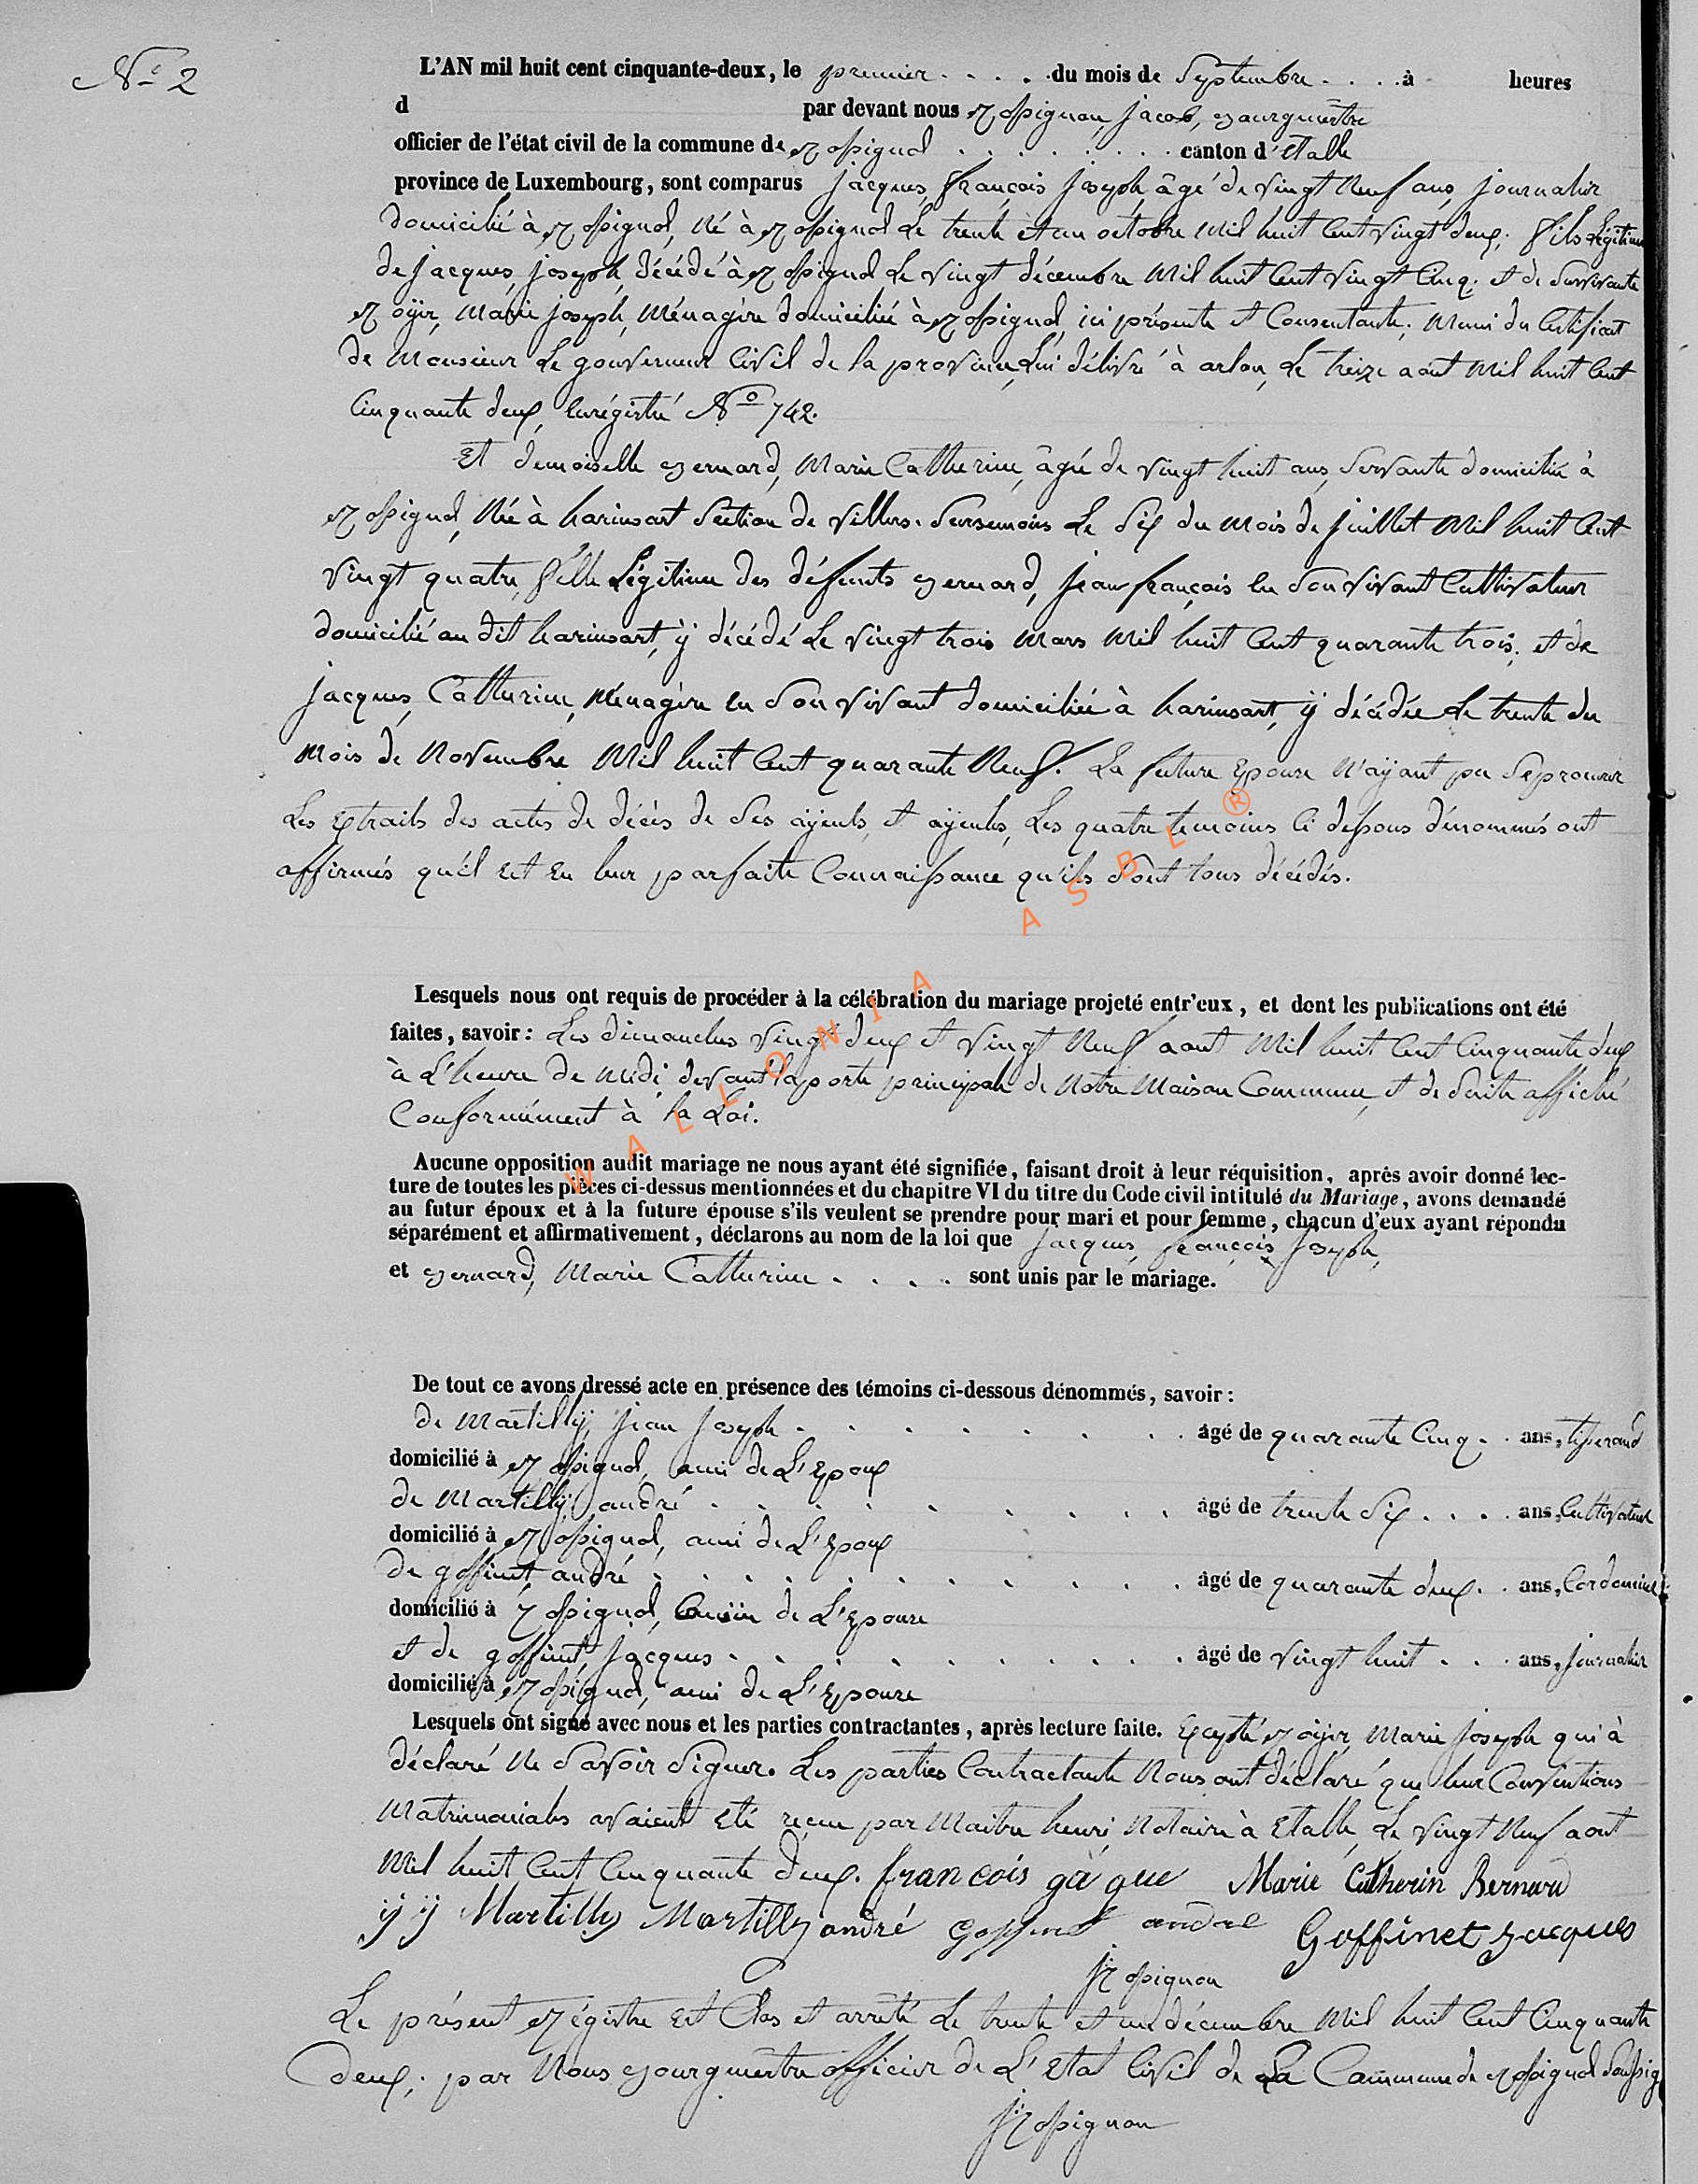 N° 2
L'AN mil huit cent cinquante-deux, le premier . . . . du mois de Septembre . . . . à heures
d par devant nous Rossignon, jacob, Bourguéstre
officier de l'état civil de la commune de Rossignol . . . . . . . . canton d'Etalle
province de Luxembourg, sont comparus jacques, françois joseph, âgé de vingt Neuf ans, journalier
domicilié à Rossignol, Né à Rossignol Le trente et un octobre Mil huit Cent vingt deux; fils Légitime
de jacques, joseph, décédé à Rossignol Le vingt décembre Mil huit Cent vingt Cinq; et de Survivante
Royer, Marie joseph, Ménagère domiciliée à Rossignol, ici présente et Consentante; Muni du Certificat
de Monsieur Le gouverneur Civil de la province, Lui délivré à arlon, Le treize aout Mil huit Cent
Cinquante deux, Enrégistré N° 742.
Et demoiselle Bernard, Marie Catherine, âgée de vingt huit ans, Servante domiciliée à
Rossignol, Née à harinsart Section de Villers-Sursemois Le Six du Mois de juillet Mil huit Cent
vingt quatre, fille Légitime des défunts Bernard, jean françois en Son vivant Cultivateur
domicilié au dit harinsart, ÿ décédé Le vingt trois Mars Mil huit Cent quarante trois; et de
jacques, Catherine, Ménagère en Son vivant domiciliée à harinsart, ÿ décédée Le trente du
Mois de Novembre Mil huit Cent quarante Neuf. La future Epouse N'aÿant pu Se procurer
Les Extraits des actes de décès de Ses aÿeuls, et aÿeules, Les quatre temoins Ci dessous dénommés ont
affirmés qu'il Est En leur parfaite Connaissance qu'ils Sont tous décédés.
Lesquels nous ont requis de procéder à la célébration du mariage projeté entr'eux, et dont les publications ont été
faites, savoir: Les dimanches vingt deux et vingt Neuf aout Mil huit Cent Cinquante deux
à L'heure de Midi devant la porte principale de Notre Maison Commune, et de Suite affiché
Conformément à la Loi.
Aucune opposition audit mariage ne nous ayant été signifiée, faisant droit à leur réquisition, après avoir donné lec-
ture de toutes les pièces ci-dessus mentionnées et du chapitre VI du titre du Code civil intitulé du Mariage, avons demandé
au futur époux et à la future épouse s'ils veulent se prendre pour mari et pour femme, chacun d'eux ayant répondu
séparément et affirmativement, déclarons au nom de la loi que jacques, françois joseph,
et Bernard, Marie Catherine . . . . sont unis par le mariage.
De tout ce avons dressé acte en présence des témoins ci-dessous dénommés, savoir:
de Martillÿ, jean joseph . . . . . . . . âgé de quarante Cinq . . ans, tisserand
domicilié à Rossignol, ami de L'Epoux
de Martillÿ, andré . . . . . . . . . âgé de trente Six . . . . ans, Cultivateur
domicilié à Rossignol, ami de L'Epoux
de goffinet, andré . . . . . . . . . . âgé de quarante deux . . ans, Cordonnier
domicilié à Rossignol, Cousin de L'Epouse
et de goffinet, jacques . . . . . . . . . âgé de vingt huit . . . ans, journalier
domicilié à Rossignol, ami de L'Epouse
Lesquels ont signé avec nous et les parties contractantes, après lecture faite. Excepté Royer, Marie joseph qui à
déclaré Ne Savoir Signer. Les parties Contractante Nous ont déclaré que leur Conventions
Matrimoniales avaient Eté reçue par Maitre henri Notaire à Etalle, Le vingt Neuf aout
Mil huit Cent Cinquante deux. francois gàque Marie Catherin Bernard
ÿ ÿ Martilly Martilly andré Goffinet andré Goffinet Jacques
J Rossignon
Le présent Régistre Est Clos et arrêté Le trente et un décembre Mil huit Cent Cinquante
deux; par Nous Bourguéstre officier de L'Etat Civil de La Commune de Rossignol Soussigné
J Rossignon
WALLONIA ASBL ®